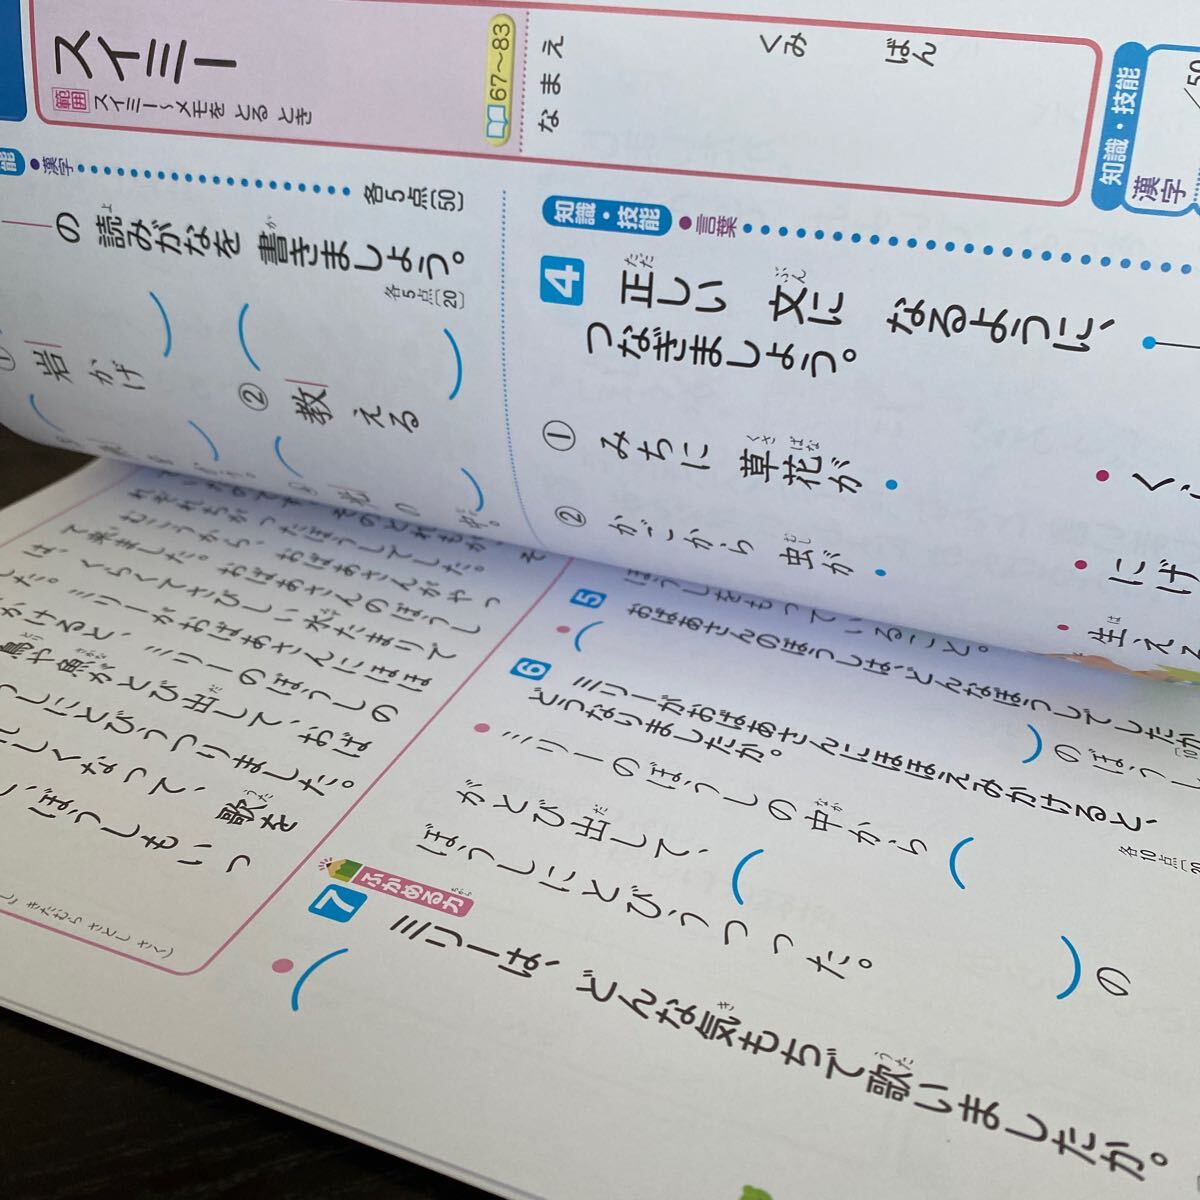 スイミー
範囲 スイミー～メモを とる とき
67～83
なまえ
くみ
ばん
知識・技能
漢字
/50
能 ・漢字 各5点[50]
の 読みがなを 書きましょう。
各5点[20]
岩かげ
② 教える
知識・技能 ・言葉
4 正しい 文に なるように、
つなぎましょう。
① みちに 草花が
② かごから 虫が
にげ
生える
むこうから、おばあさんがやっ
て来ました。おばあさんのぼうし
は、くらくてさびしい水たまりで
した。
ミリーがおばあさんにほほ
かけると、ミリーのぼうしの
鳥や魚がとび出して、おば
しにとびうつりました。
しくなって、歌を
ぼうしもいっ
きたむら さとし さく)
ぼうしをもっていること。
5 おばあさんのぼうしは、どんなぼうしでしたか
のぼうし
6 ミリーがおばあさんにほほえみかけると、
どうなりましたか。
各10点[20
・ミリーのぼうしの中から
がとび出して、
の
ぼうしにとびうつった。
ふかめる力
7 ミリーは、どんな気もちで歌いましたか。